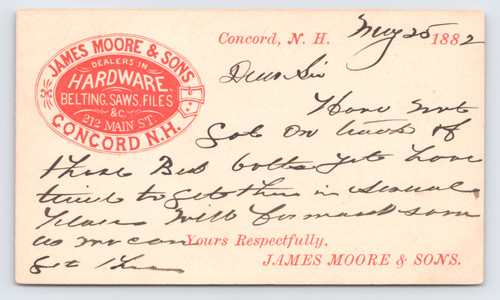 JAMES MOORE & SONS
DEALERS IN
HARDWARE.
BELTING, SAWS, FILES
&C.
212 MAIN ST.
CONCORD N.H.
Concord, N. H. May 25 1882
Dear Sir
Have not
got on track of
those Bed bolts yet have
tried to get them in several
places Will forward soon
as we can
get them
Yours Respectfully,
JAMES MOORE & SONS.